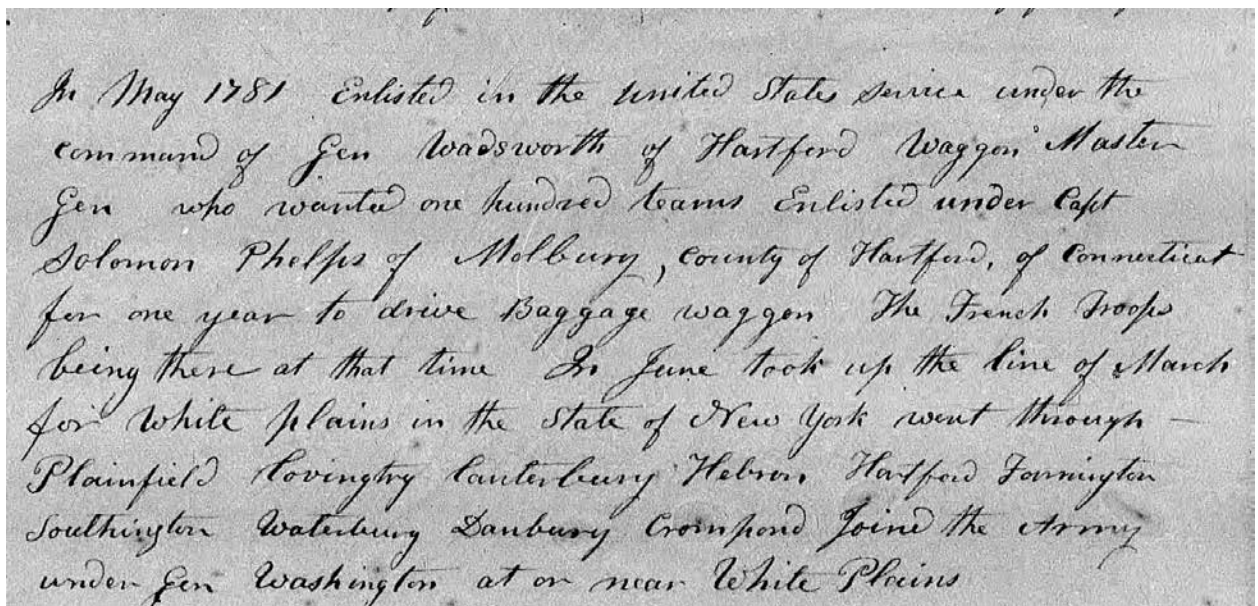 In May 1781 Enlisted in the united States service under the
command of Gen Wadsworth of Hartford Waggon Master
Gen who wanted one hundred teams Enlisted under Capt
Solomon Phelps of Molbury, county of Hartford, of Connecticut
for one year to drive Baggage waggon The French Troops
being there at that time In June took up the line of March
for White plains in the State of New York went through —
Plainfield Covingtry Canterbury Hebron Hartford Farmington
Southington Waterbury Danbury Crompond Joined the Army
under Gen Washington at or near White Plains